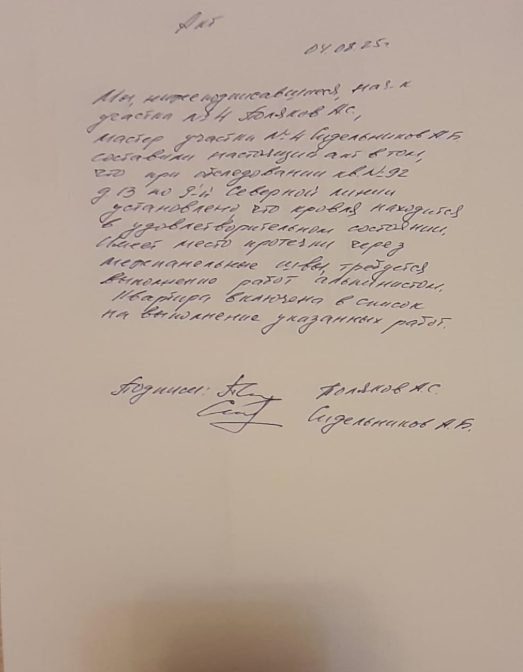 Акт
04.08.25г.
Мы, нижеподписавшиеся, нач-к
участка №4 Поляков АС,
мастер участка №4 Сидельников А.Б
составили настоящий акт в том,
что при обследовании кв.№92
д 13 по 9-й Северной линии
установлено, что кровля находится
в удовлетворительном состоянии.
Имеет место протечки через
межпанельные швы, требуется
выполнение работ альпинистом.
Квартира включена в список
на выполнение указанных работ.
Подписи: Поляков АС.
Сидельников А.Б.